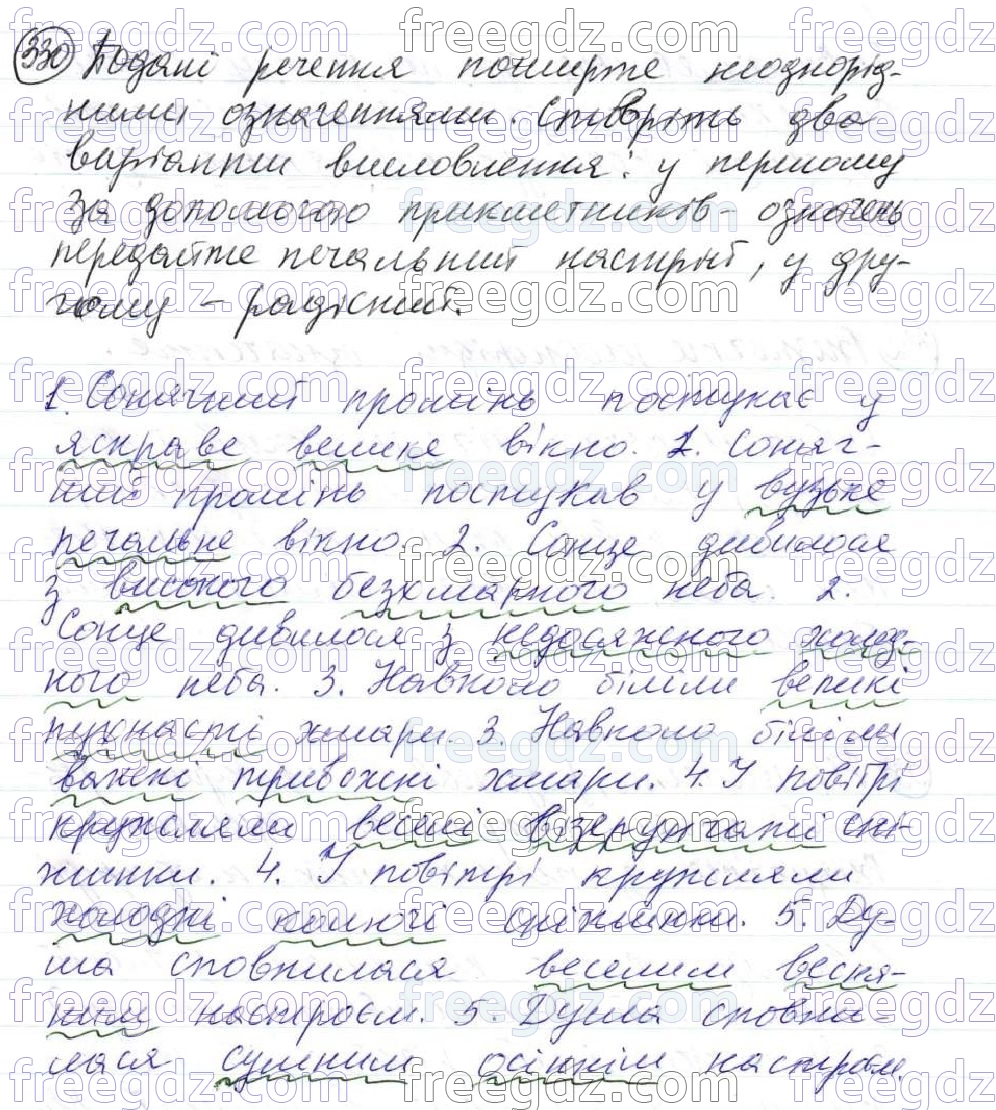 330 Подані речення поширте неоднорід-
ними означеннями. Створіть два
варіанти висловлення: у першому
за допомогою прикметників - означень
передайте печальний настрій, у дру-
гому - радісний.
1. Сонячний промінь постукає у
яскраве велике вікно. 1. Соняч-
ний промінь постукав у вузьке
печальне вікно. 2. Сонце дивилося
з високого безхмарного неба. 2.
Сонце дивилося з недосяжного холод-
ного неба. 3. Навколо біліли великі
пухнасті хмари. 3. Навколо біліли
важкі тривожні хмари. 4. У повітрі
кружляли веселі візерунчаті сні-
жинки. 4. У повітрі кружляли
холодні колючі сніжинки. 5. Ду-
ша сповнилася веселим весня-
ним настроєм. 5. Душа сповни-
лася сумним осіннім настроєм.